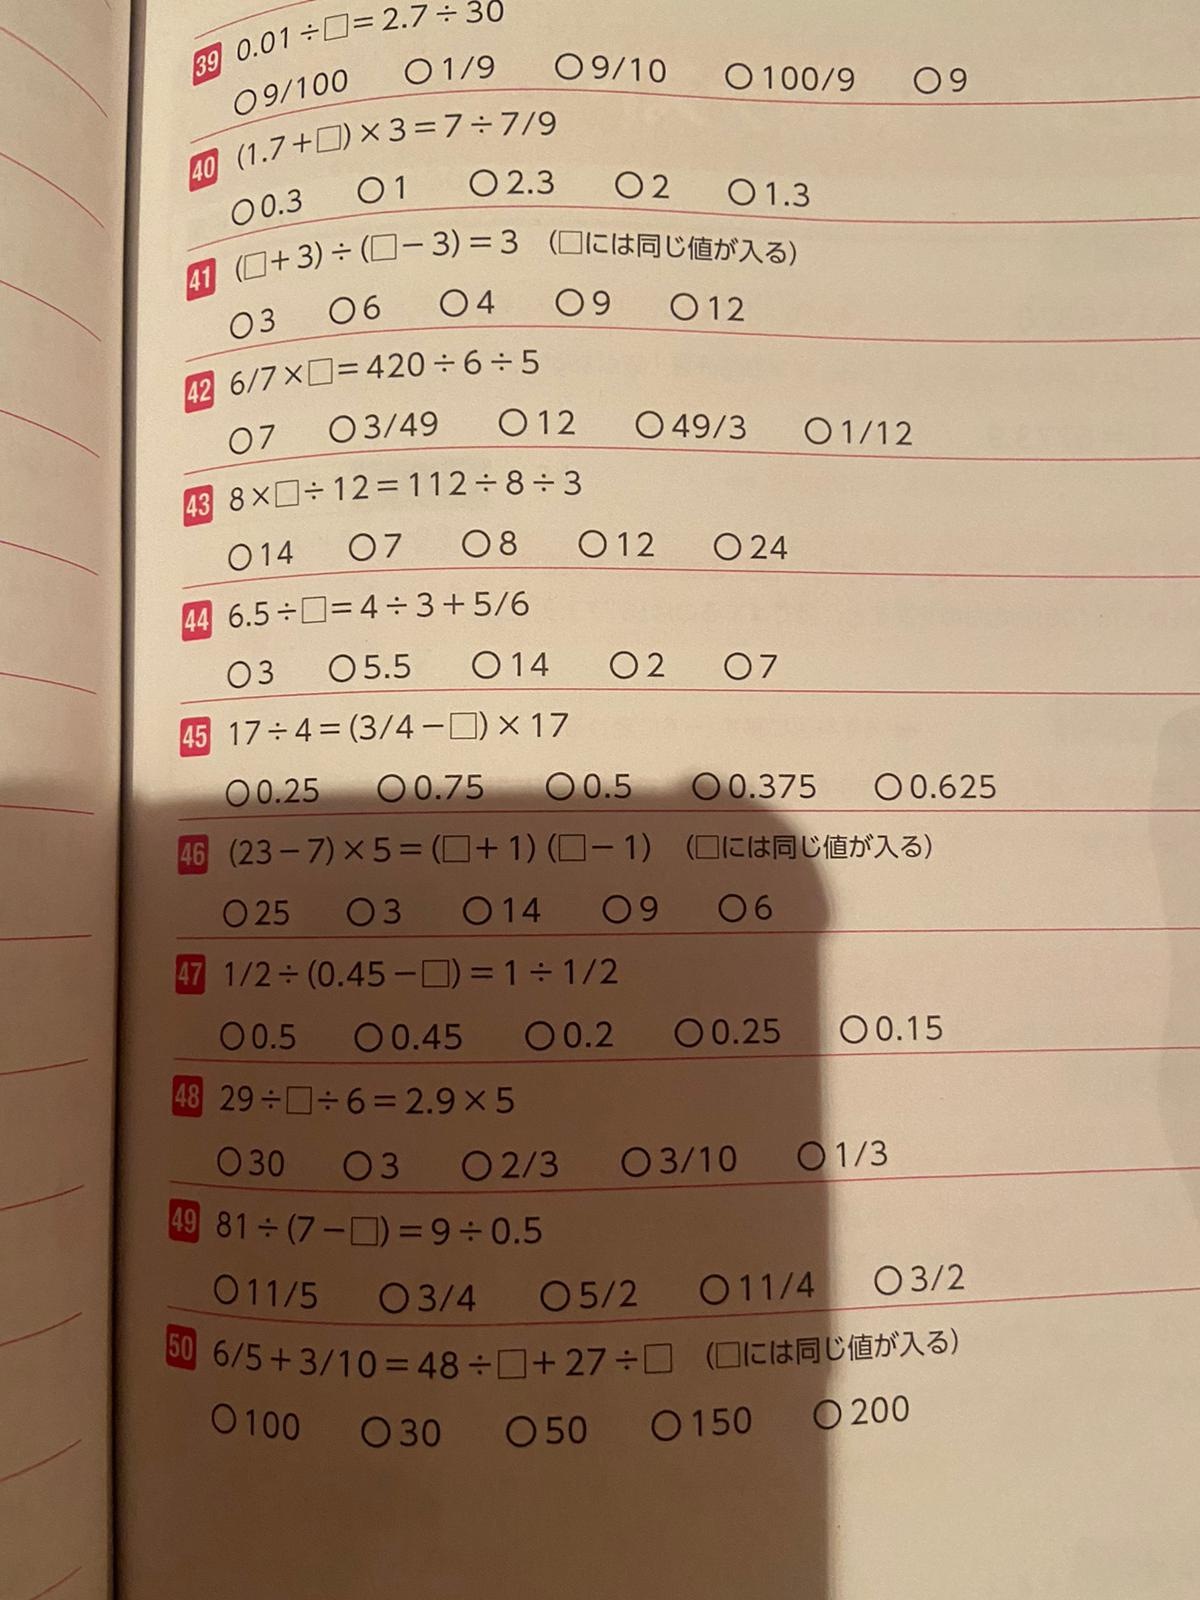 39 0.01÷□=2.7÷30
○9/100 ○1/9 ○9/10 ○100/9 ○9
40 (1.7+□)×3=7÷7/9
○0.3 ○1 ○2.3 ○2 ○1.3
41 (□+3)÷(□-3)=3 (□には同じ値が入る)
○3 ○6 ○4 ○9 ○12
42 6/7×□=420÷6÷5
○7 ○3/49 ○12 ○49/3 ○1/12
43 8×□÷12=112÷8÷3
○14 ○7 ○8 ○12 ○24
44 6.5÷□=4÷3+5/6
○3 ○5.5 ○14 ○2 ○7
45 17÷4=(3/4-□)×17
○0.25 ○0.75 ○0.5 ○0.375 ○0.625
46 (23-7)×5=(□+1)(□-1) (□には同じ値が入る)
○25 ○3 ○14 ○9 ○6
47 1/2÷(0.45-□)=1÷1/2
○0.5 ○0.45 ○0.2 ○0.25 ○0.15
48 29÷□÷6=2.9×5
○30 ○3 ○2/3 ○3/10 ○1/3
49 81÷(7-□)=9÷0.5
○11/5 ○3/4 ○5/2 ○11/4 ○3/2
50 6/5+3/10=48÷□+27÷□ (□には同じ値が入る)
○100 ○30 ○50 ○150 ○200